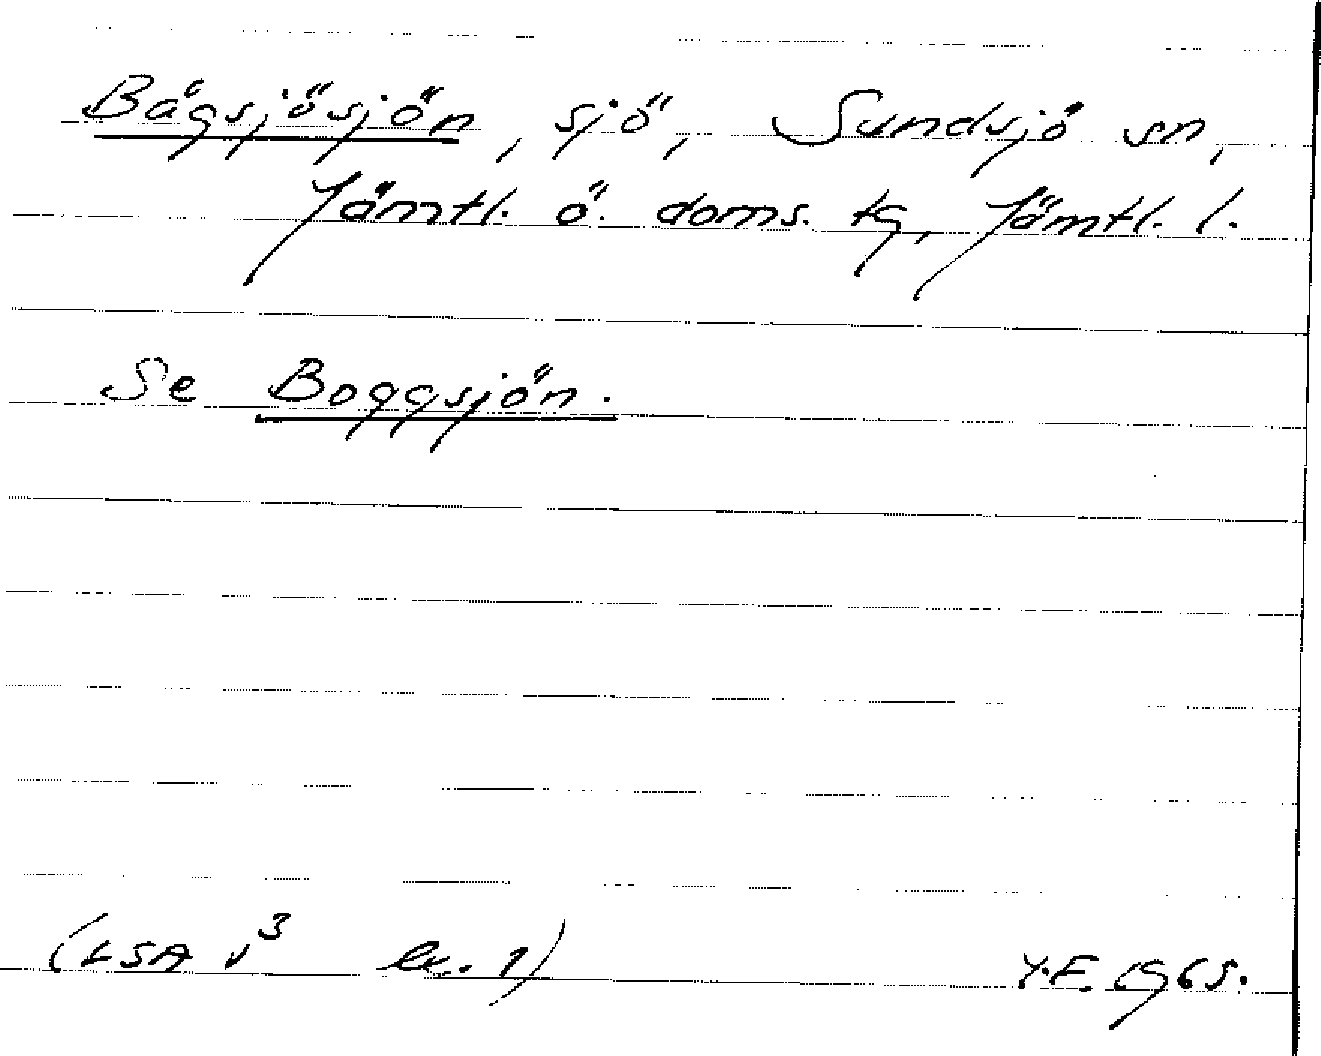 Bågsjösjön, sjö, Sundsjö sn,
Jämtl. ö. doms. tg, Jämtl. l.
Se Boggsjön.
(LSA v³ lu. 1)
Y.E. 1965.